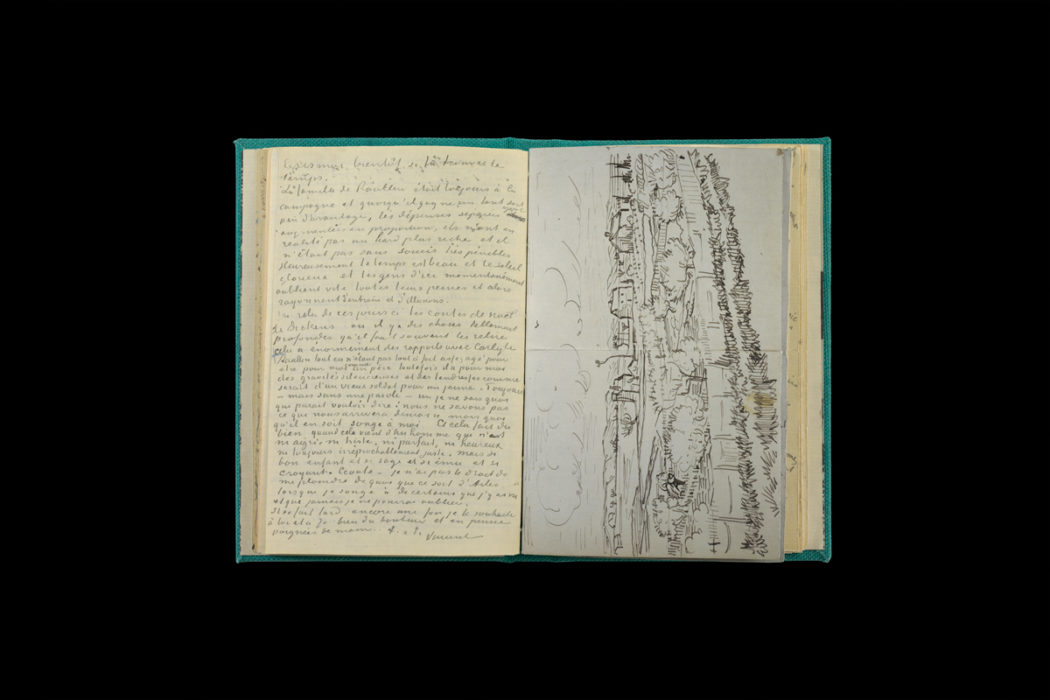 bientôt
temps.
La famille de Roullin était toujours à la
campagne et quoiqu'il gagne un tant soit
peu d'avantage, les dépenses séparées
augmentées en proportion, ils n'ont en
réalité pas un liard plus riche et il
n'était pas sans soucis très pénibles
Heureusement le temps est beau et le soleil
glorieux et les gens d'ici momentanément
oublient vite toutes leurs peines et alors
rayonnent d'entrain et d'illusions.
J'ai relu de ces jours ci les contes de noel
de Dickens où il y a des choses tellement
profondes qu'il faut souvent les relire
cela a énormement des rapports avec Carlyle
Roullin tout en n'étant pas tout à fait assez agé pour
être pour moi comme un père toutefois il a pour moi
des gravités silencieuses et des tendresses comme
serait d'un vieux soldat pour un jeune. Toujours
– mais sans une parole – un je ne sais quoi
qui parait vouloir dire: nous ne savons pas
ce que nous arrivera demain mais quoi
qu'il en soit songe à moi. Et cela fait du
bien quand cela vient d'un homme qui n'est
ni aigri ni triste, ni parfait, ni heureux
ni toujours irréprochablement juste. mais si
bon enfant et si sage et si ému et si
croyant. Ecoute – je n'ai pas le droit de
me plaindre de quoi que ce soit d'Arles
lorsque je songe à de certains que j'y ai vu
et que jamais je ne pourrai oublier.
Il se fait tard encore une fois je te souhaite
à toi et à Jo bien du bonheur et en pensée
poignées de main. t. à t.
Vincent